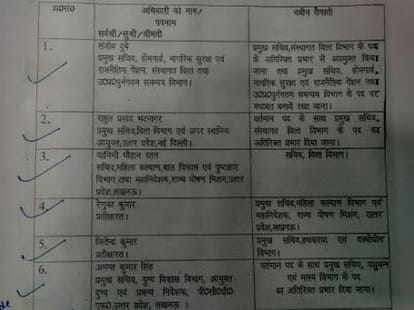 क्र0सं0
अधिकारी का नाम/
पदनाम
सर्वश्री/सुश्री/श्रीमती
नवीन तैनाती
1.
संजीव दुबे
प्रमुख सचिव, होमगार्ड, नागरिक सुरक्षा एवं
राजनैतिक पेंशन, संस्थागत वित्त तथा
उ0प्र0पुर्नगठन समन्वय विभाग।
प्रमुख सचिव,संस्थागत वित्त विभाग के पद
के अतिरिक्त प्रभार से अवमुक्त किया
जाना तथा प्रमुख सचिव, होमगार्ड,
नागरिक सुरक्षा एवं राजनैतिक पेंशन तथा
उ0प्र0पुर्नगठन समन्वय विभाग के पद पर
यथावत बनाये रखा जाना।
2.
राहुल प्रसाद भटनागर
प्रमुख सचिव,वित्त विभाग एवं अपर स्थानिक
आयुक्त,उत्तर प्रदेश,नई दिल्ली।
वर्तमान पद के साथ प्रमुख सचिव,
संस्थागत वित्त विभाग के पद का
अतिरिक्त प्रभार दिया जाना।
3.
कामिनी चौहान रतन
सचिव,महिला कल्याण,बाल विकास एवं पुष्टाहार
विभाग तथा महानिदेशक,राज्य पोषण मिशन,उत्तर
प्रदेश,लखनऊ।
सचिव, वित्त विभाग।
4.
रेणुका कुमार
प्रतीक्षारत।
प्रमुख सचिव,महिला कल्याण विभाग एवं
महानिदेशक, राज्य पोषण मिशन, उत्तर
प्रदेश,लखनऊ।
5.
जितेन्द्र कुमार
प्रतीक्षारत।
प्रमुख सचिव,हथकरघा एवं वस्त्रोद्योग
विभाग।
6.
अनन्त कुमार सिंह
प्रमुख सचिव, दुग्ध विकास विभाग, आयुक्त
दुग्ध एवं प्रबन्ध निदेशक, पी0सी0डी0
एफ0,उत्तर प्रदेश, लखनऊ ।
वर्तमान पद के साथ प्रमुख सचिव, पशुधन
एवं मत्स्य विभाग के पद
का अतिरिक्त प्रभार दिया जाना।